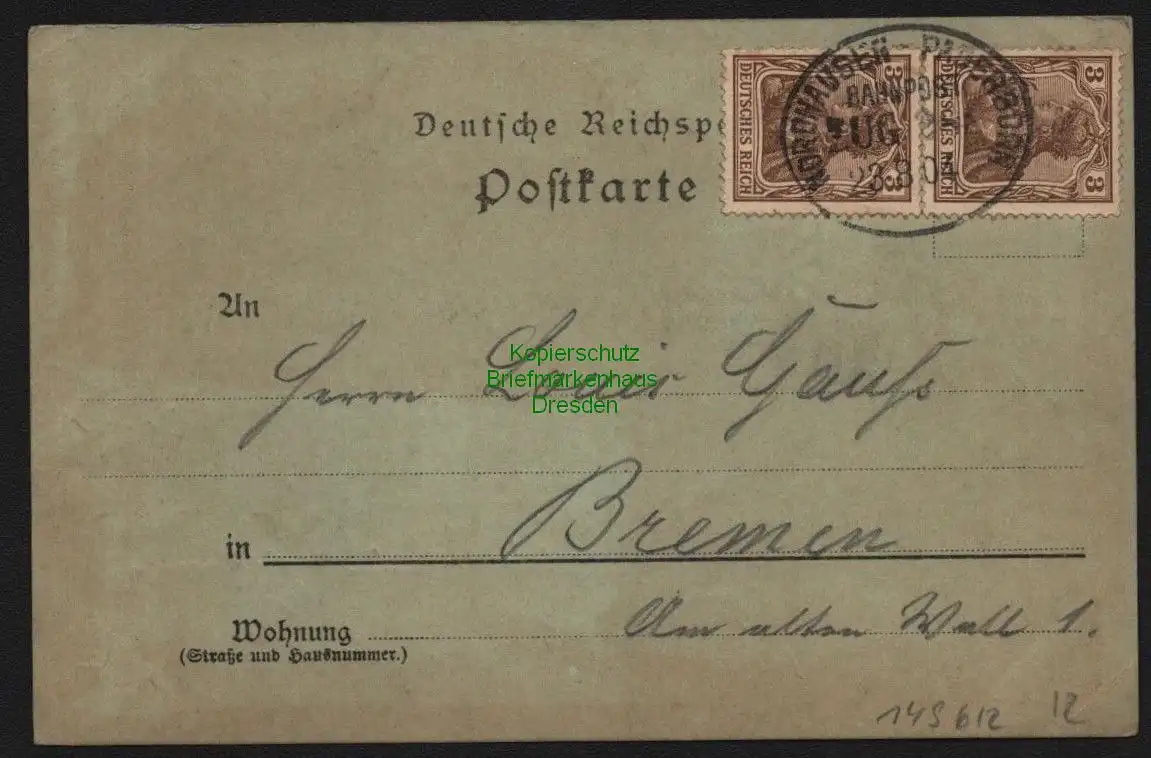 Deutsche Reichspo
Postkarte
3 DEUTSCHES REICH 3
3 DEUTSCHES REICH 3
NORDHAUSEN - PADERBORN
BAHNPOST
ZUG
23.8.0
An
Herrn Louis Gauß
Kopierschutz
Briefmarkenhaus
Dresden
in Bremen
Wohnung Am alten Wall 1.
(Straße und Hausnummer.)
149612 12